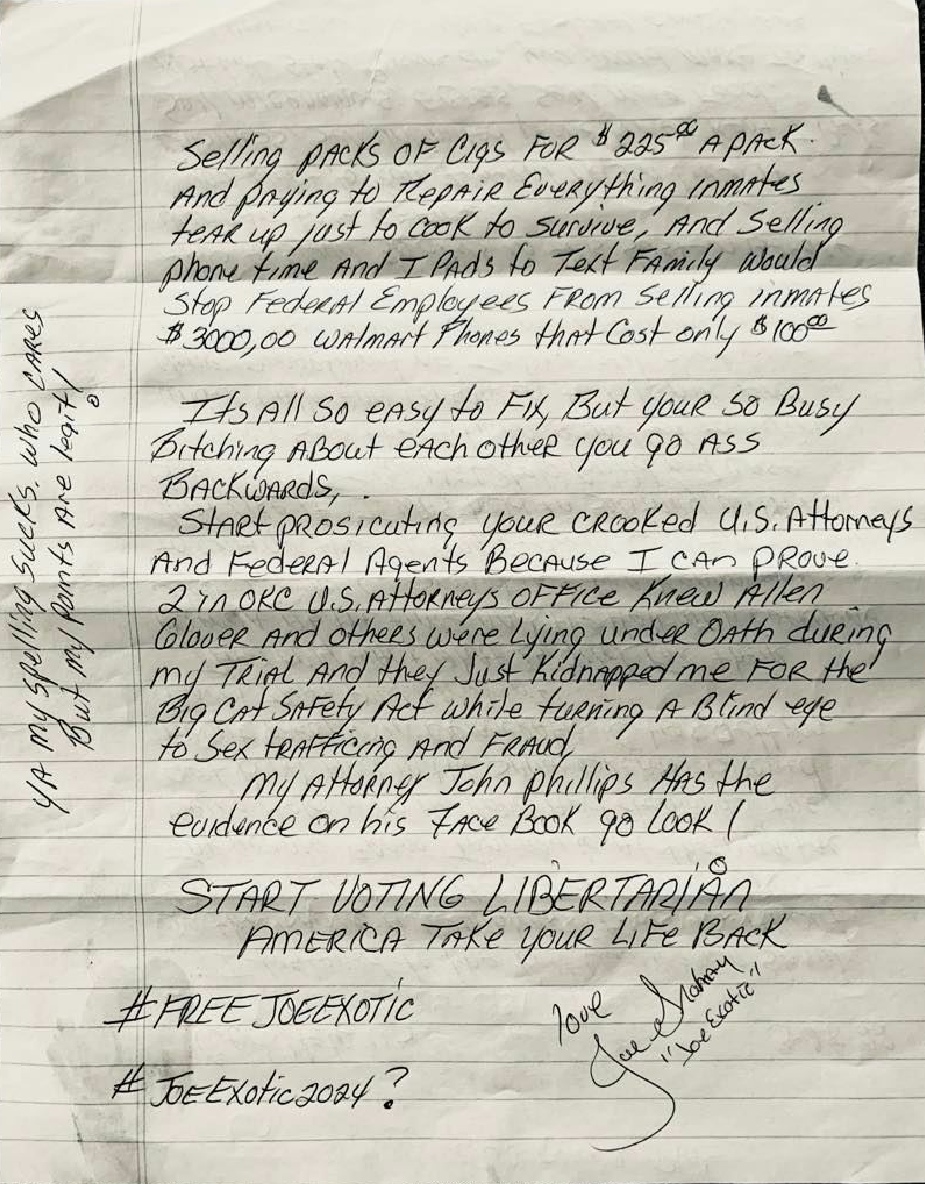 Selling packs of Cigs for $225⁰⁰ a pack.
And paying to Repair Everything inmates
tear up just to cook to survive, And Selling
phone time And I Pads to Text Family would
Stop Federal Employees From Selling inmates
$3000,00 Walmart Phones that Cost only $100⁰⁰
Its All So easy to Fix, But your so Busy
Bitching About each other you go Ass
Backwards,.
Start prosicuting your crooked U.S. Attorneys
And Federal Agents Because I can prove
2 in OKC U.S. Attorneys office Knew Allen
Glover And others were lying under Oath during
my Trial And they Just Kidnapped me For the
Big Cat Safety Act while turning A Blind eye
to Sex trafficing And Fraud,
My Attorney John phillips Has the
evidence on his Face Book go look!
START VOTING LIBERTARIAN
AMERICA TAKE YOUR LIFE BACK
#FREEJOEEXOTIC
love
"Joe Exotic"
#JOEEXotic2024?
YA my spelling sucks, who cares
But my points Are legit!